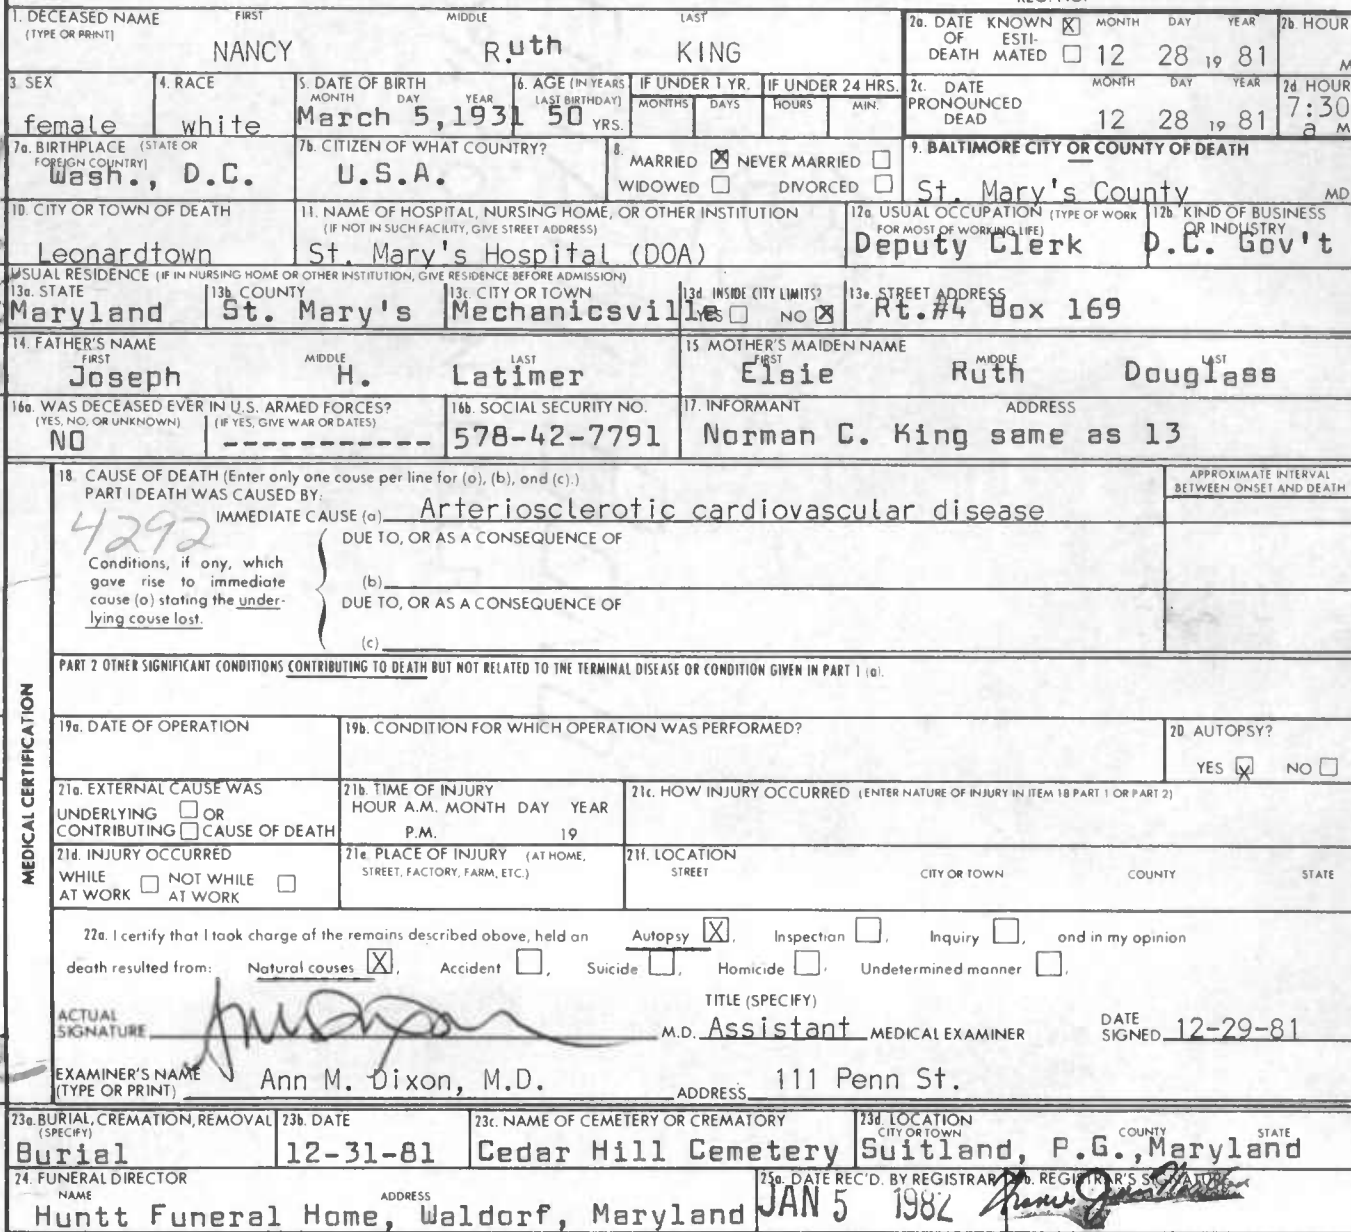 1. DECEASED NAME FIRST MIDDLE LAST
(TYPE OR PRINT)
NANCY Ruth KING
2a. DATE KNOWN X MONTH DAY YEAR
OF ESTI-
DEATH MATED 12 28 19 81
2b. HOUR
M
3. SEX
female
4. RACE
white
5. DATE OF BIRTH
MONTH DAY YEAR
March 5,1931
6. AGE (IN YEARS
LAST BIRTHDAY)
50 YRS.
IF UNDER 1 YR.
MONTHS DAYS
IF UNDER 24 HRS.
HOURS MIN.
2c. DATE MONTH DAY YEAR
PRONOUNCED
DEAD 12 28 19 81
2d HOUR
7:30
a M
7a. BIRTHPLACE (STATE OR
FOREIGN COUNTRY)
Wash., D.C.
7b. CITIZEN OF WHAT COUNTRY?
U.S.A.
8.
MARRIED X NEVER MARRIED
WIDOWED DIVORCED
9. BALTIMORE CITY OR COUNTY OF DEATH
St. Mary's County MD
10. CITY OR TOWN OF DEATH
Leonardtown
11. NAME OF HOSPITAL, NURSING HOME, OR OTHER INSTITUTION
(IF NOT IN SUCH FACILITY, GIVE STREET ADDRESS)
St. Mary's Hospital (DOA)
12a USUAL OCCUPATION (TYPE OF WORK
FOR MOST OF WORKING LIFE)
Deputy Clerk
12b. KIND OF BUSINESS
OR INDUSTRY
D.C. Gov't
USUAL RESIDENCE (IF IN NURSING HOME OR OTHER INSTITUTION, GIVE RESIDENCE BEFORE ADMISSION)
13a. STATE
Maryland
13b. COUNTY
St. Mary's
13c. CITY OR TOWN
Mechanicsville
13d. INSIDE CITY LIMITS?
YES NO X
13e. STREET ADDRESS
Rt.#4 Box 169
14. FATHER'S NAME
FIRST MIDDLE LAST
Joseph H. Latimer
15 MOTHER'S MAIDEN NAME
FIRST MIDDLE LAST
Elsie Ruth Douglass
16a. WAS DECEASED EVER IN U.S. ARMED FORCES?
(YES, NO, OR UNKNOWN) (IF YES, GIVE WAR OR DATES)
NO -----------
16b. SOCIAL SECURITY NO.
578-42-7791
17. INFORMANT ADDRESS
Norman C. King same as 13
MEDICAL CERTIFICATION
18. CAUSE OF DEATH (Enter only one couse per line for (a), (b), and (c).)
PART I DEATH WAS CAUSED BY:
4292
IMMEDIATE CAUSE (a) Arteriosclerotic cardiovascular disease
APPROXIMATE INTERVAL
BETWEEN ONSET AND DEATH
DUE TO, OR AS A CONSEQUENCE OF
Conditions, if any, which
gave rise to immediate
cause (a) stating the under-
lying couse last.
(b)
DUE TO, OR AS A CONSEQUENCE OF
(c)
PART 2 OTHER SIGNIFICANT CONDITIONS CONTRIBUTING TO DEATH BUT NOT RELATED TO THE TERMINAL DISEASE OR CONDITION GIVEN IN PART 1 (a).
19a. DATE OF OPERATION
19b. CONDITION FOR WHICH OPERATION WAS PERFORMED?
20 AUTOPSY?
YES X NO
21a. EXTERNAL CAUSE WAS
UNDERLYING OR
CONTRIBUTING CAUSE OF DEATH
21b. TIME OF INJURY
HOUR A.M. MONTH DAY YEAR
P.M. 19
21c. HOW INJURY OCCURRED (ENTER NATURE OF INJURY IN ITEM 18 PART 1 OR PART 2)
21d. INJURY OCCURRED
WHILE AT WORK NOT WHILE AT WORK
21e. PLACE OF INJURY (AT HOME,
STREET, FACTORY, FARM, ETC.)
21f. LOCATION
STREET CITY OR TOWN COUNTY STATE
22a. I certify that I took charge of the remains described above, held an Autopsy X, Inspection , Inquiry , and in my opinion
death resulted from: Natural couses X, Accident , Suicide , Homicide , Undetermined manner .
ACTUAL
SIGNATURE
TITLE (SPECIFY)
M.D. Assistant MEDICAL EXAMINER
DATE
SIGNED 12-29-81
EXAMINER'S NAME
(TYPE OR PRINT) Ann M. Dixon, M.D.
ADDRESS 111 Penn St.
23a. BURIAL, CREMATION, REMOVAL
(SPECIFY)
Burial
23b. DATE
12-31-81
23c. NAME OF CEMETERY OR CREMATORY
Cedar Hill Cemetery
23d. LOCATION
CITY OR TOWN COUNTY STATE
Suitland, P.G.,Maryland
24. FUNERAL DIRECTOR
NAME ADDRESS
Huntt Funeral Home, Waldorf, Maryland
25a. DATE REC'D. BY REGISTRAR
JAN 5 1982
REGISTRAR'S SIGNATURE